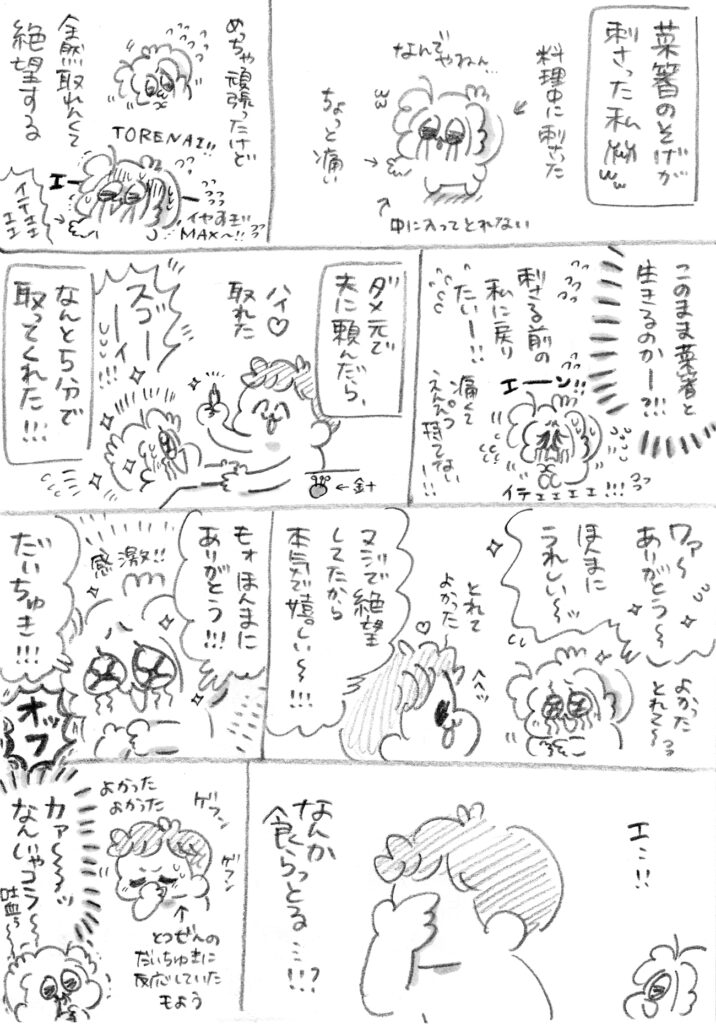 菜箸のそげが
刺さった私
料理中に刺さった
なんでやねん…
ちょっと痛い
中に入ってとれない
めっちゃ頑張ったけど
全然取れんくて
絶望する
TORENAI!!
エー
イヤすぎ!!
MAX〜!!
イテェェ
ェェ
このまま菜箸と
生きるのかー?!!!
刺さる前の
私に戻り
たいー!!
エーン!!
痛くて
えんぴつ
持てない
ー!!!
イテェェェェ!!!
ダメ元で
夫に頼んだら、
ハイ♡
取れた
←針
スゴー
ーイ!!
なんと5分で
取ってくれた!!!
ワァ〜
ありがとう〜
ほんまに
うれしい〜ッ
よかった
とれて〜
とれて
よかった
へへッ
マジで絶望
してたから
本気で嬉しい〜!!!
もォほんまに
ありがとう!!!
感激!!
だいちゅき!!!
オッフ
エ…!!
なんか
食らっとる…!!?
ゲフン
ゲフン
よかった
よかった
とつぜんの
だいちゅきに
反応していた
もよう
カァ〜〜ッ
なんじゃコラ〜
吐血